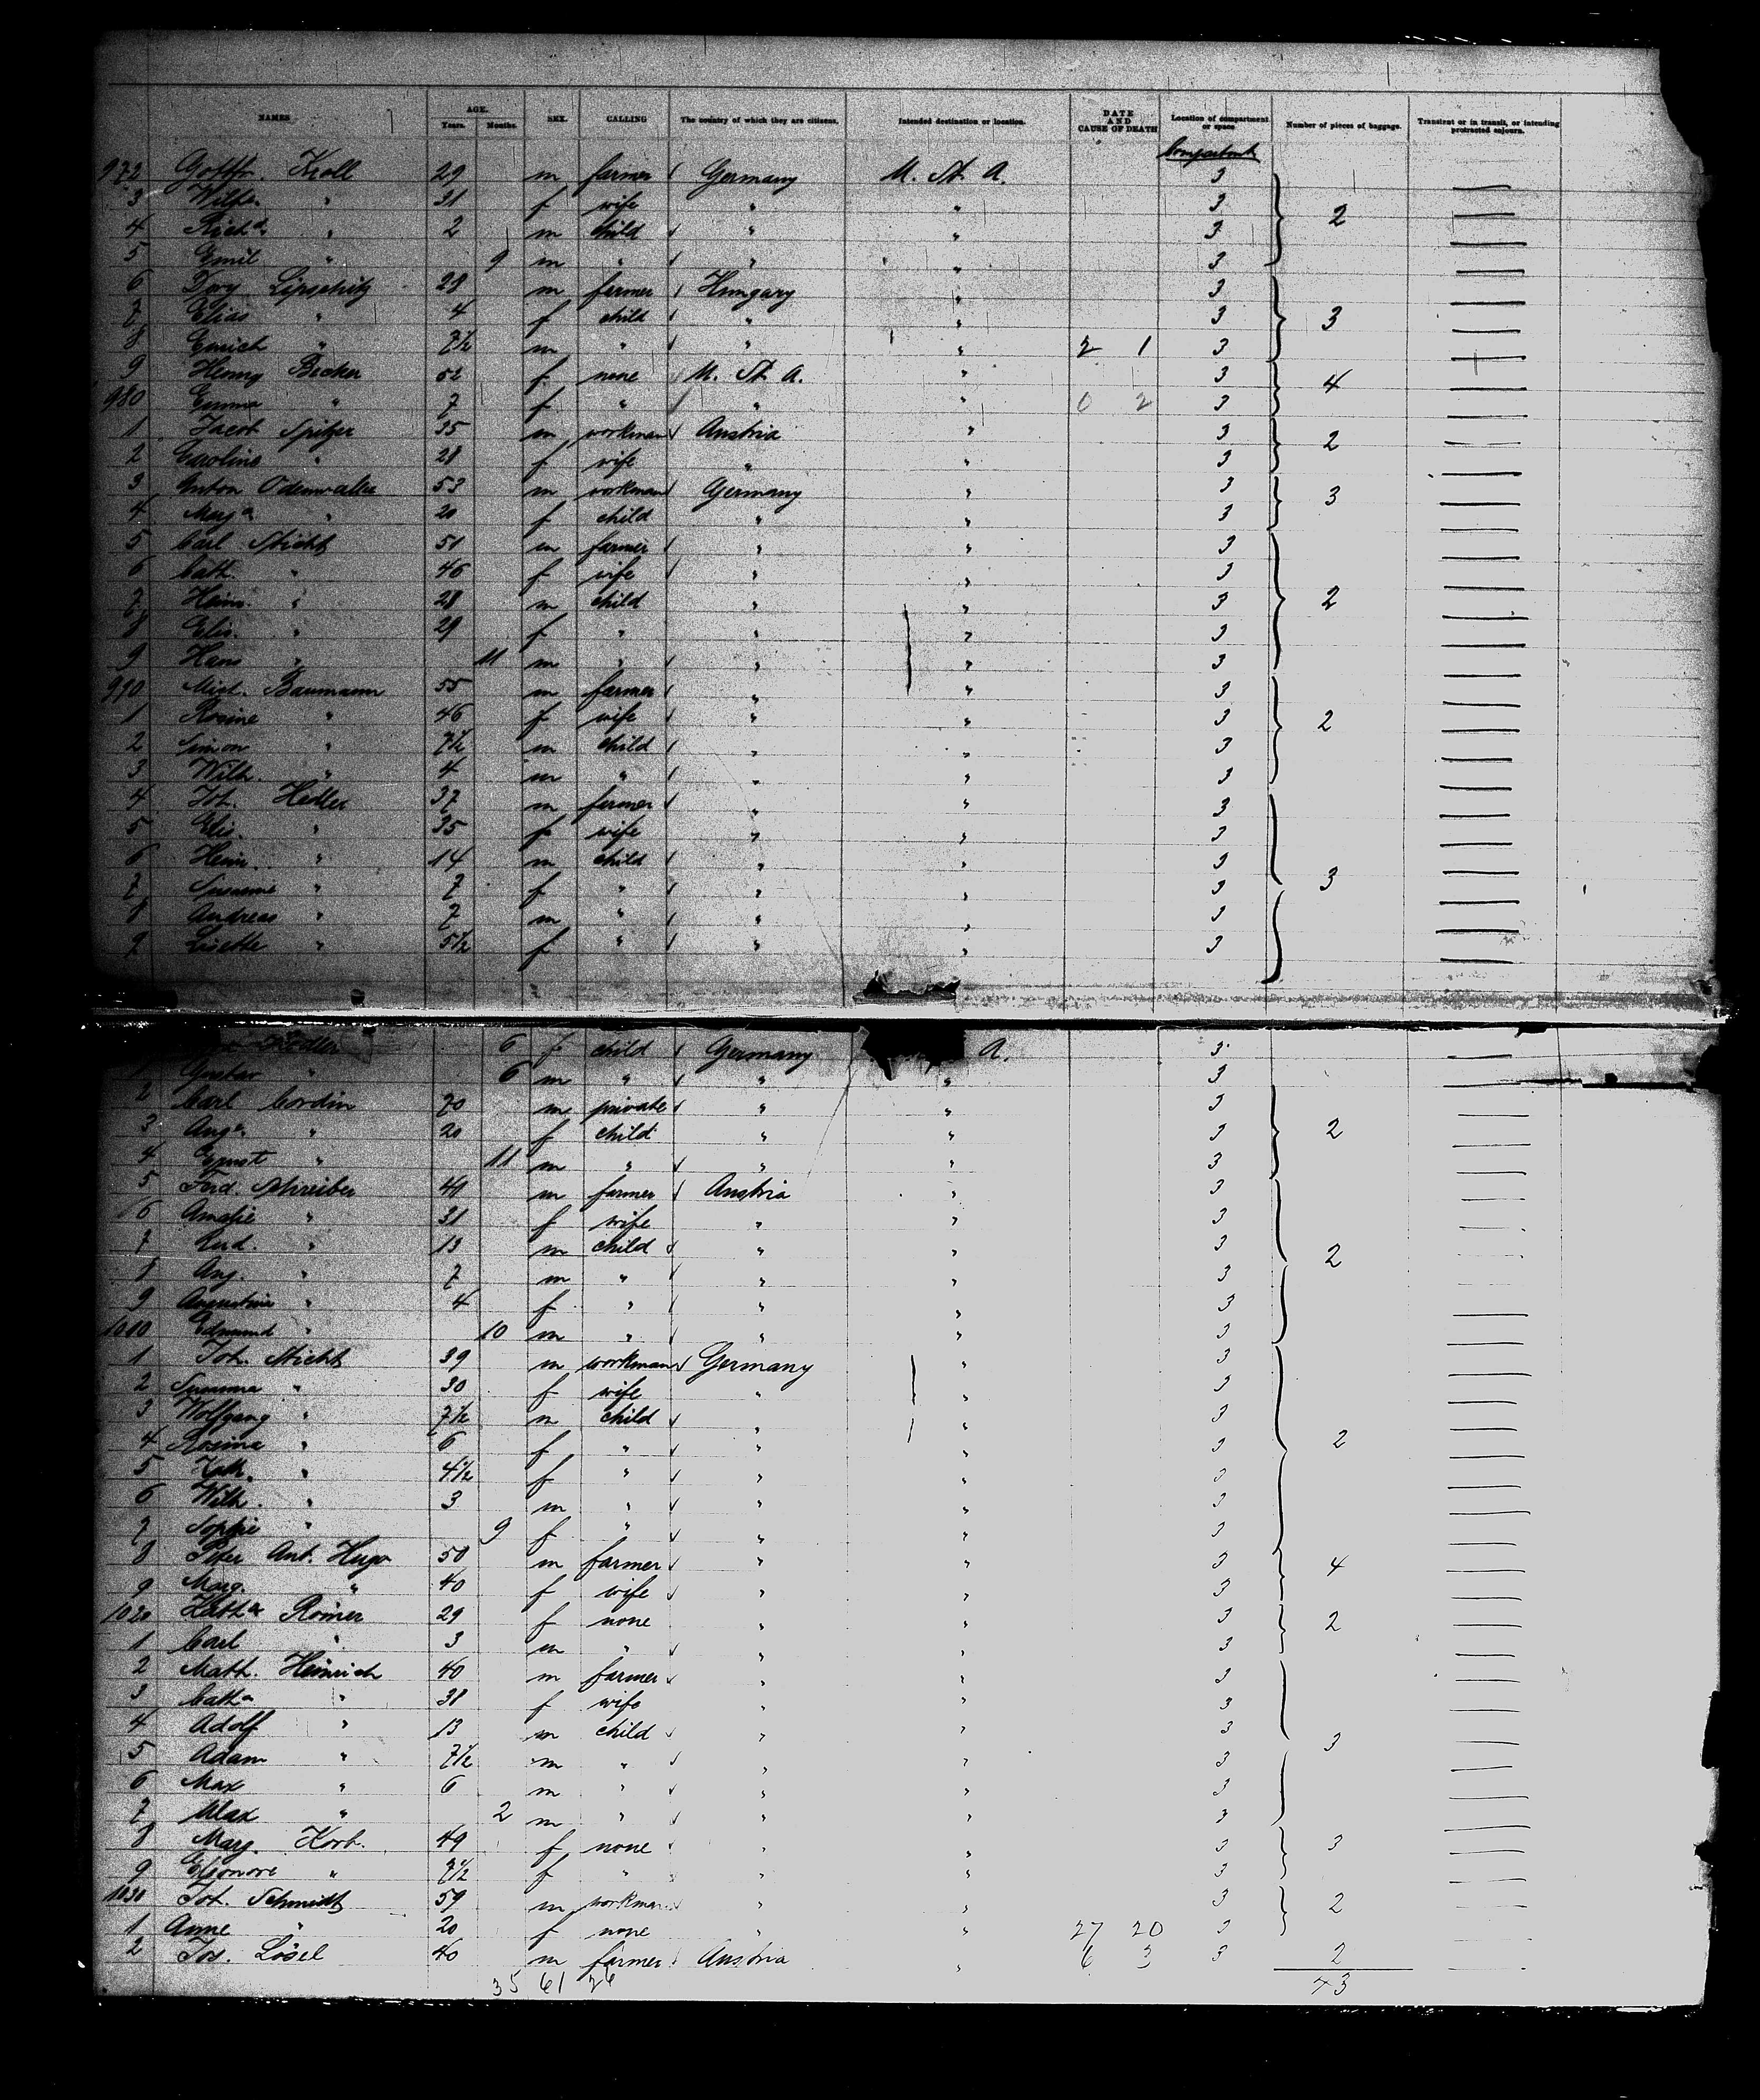 NAMES AGE. SEX. CALLING The country of which they are citizens. Intended destination or location. DATE AND CAUSE OF DEATH Location of compartment or space Number of pieces of baggage. Transient or in transit, or intending protracted sojourn.
Years. Months.
972 Kroll 29 m farmer Germany U. St. A. 3
3 Wilhe. " 31 f wife " " 3 2
4 Richd. " 2 m child " " 3
5 Emil " 9 m " " " 3
6 Lipschitz 29 m farmer Hungary " 3
7 Elias " 4 f child " " 3 3
8 Emich " 7½ m " " " 2 1 3
9 Becker 52 f none U. St. A. " 3 4
980 Emma " 7 f " " " 0 2 3
1 Jacob Spitzer 35 m workman Austria " 3 2
2 Caroline " 28 f wife " " 3
3 Anton 53 m workman Germany " 3 3
4 " 20 f child " " 3
5 Carl Sticht 51 m farmer " " 3
6 Cath. " 46 f wife " " 3
7 Heinr. " 28 m child " " 3 2
8 Elis. " 29 f " " " 3
9 Hans " 11 m " " " 3
990 Mich. Baumann 55 m farmer " " 3
1 Rosine " 46 f wife " " 3 2
2 Simon " 7½ m child " " 3
3 Wilh. " 4 m " " " 3
4 Joh. Hedler 37 m farmer " " 3
5 Elis. " 35 f wife " " 3
6 Heinr. " 14 m child " " 3
7 " 7 f " " " 3 3
8 Andreas " 7 m " " " 3
9 Lisette " 5½ f " " " 3
Hedler 6 f child Germany A. 3
1 Gustav " 6 m " " " 3
2 Carl Cordin 70 m private " " 3
3 Auge. " 20 f child " " 3 2
4 Ernst " 11 m " " " 3
5 Ferd. Schreiber 41 m farmer Austria " 3
6 Amalie " 31 f wife " " 3
7 " 13 m child " " 3 2
8 Aug. " 7 m " " " 3
9 Augustine " 4 f " " " 3
1010 Edmund " 10 m " " " 3
1 Joh. Sticht 39 m workman Germany " 3
2 " 30 f wife " " 3
3 Wolfgang " 7½ m child " " 3
4 Rosine " 6 f " " " 3 2
5 Kath. " 4½ f " " " 3
6 Wilh. " 3 m " " " 3
7 Sophie " 9 f " " " 3
8 Peter Ant. Hugo 50 m farmer " " 3 4
9 Marg. " 40 f wife " " 3
1020 Kath. Römer 29 f none " " 3 2
1 Carl " 3 m " " " 3
2 Math. Heinrich 40 m farmer " " 3
3 Catha " 38 f wife " " 3
4 Adolf " 13 m child " " 3
5 Adam " 7½ m " " " 3 3
6 Max " 6 m " " " 3
7 " 2 m " " " 3
8 Marg. Korb. 49 f none " " 3 3
9 Eleonore " 7½ f " " " 3
1030 Joh. Schmidt 59 m workman " " 3 2
1 Anne " 20 f none " " 27 20 3
2 Jos. Lösel 40 m farmer Austria " 6 3 3 2
35 61 26 73